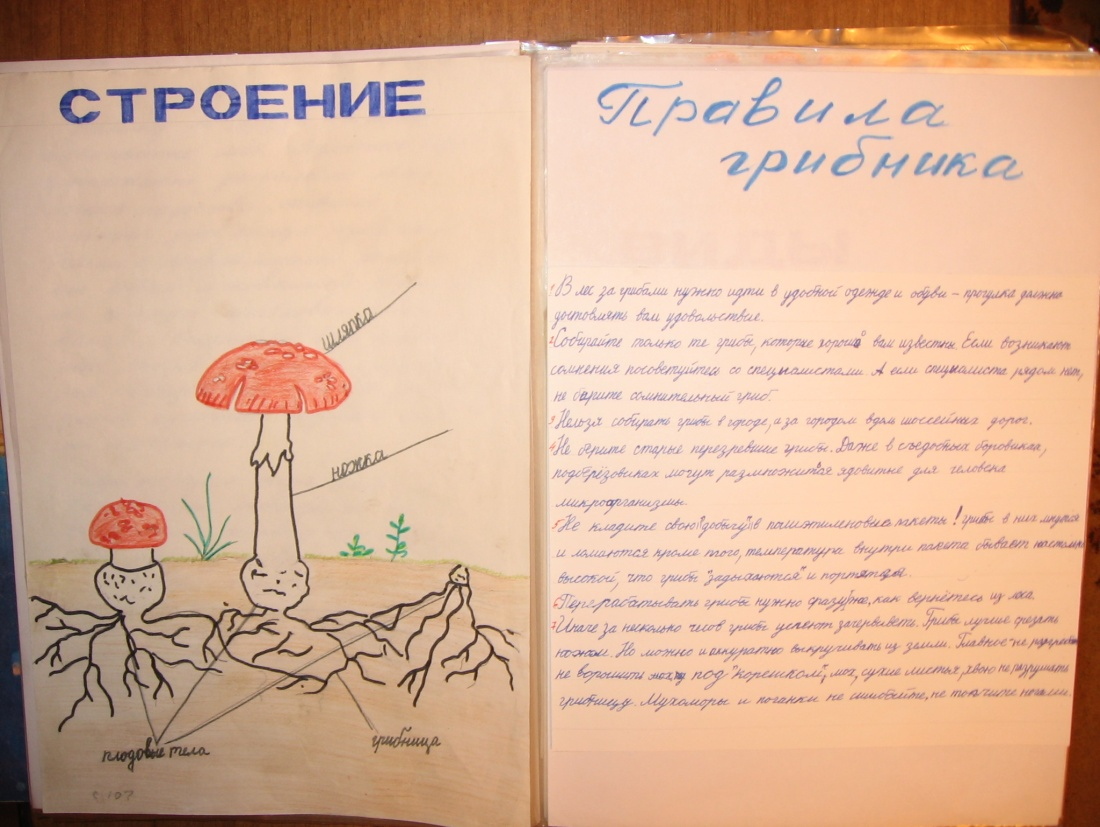 СТРОЕНИЕ
шляпка
ножка
плодовые тела
грибница
Правила
грибника
1 В лес за грибами нужно идти в удобной одежде и обуви – прогулка должна
доставлять вам удовольствие.
2 Собирайте только те грибы, которые хорошо вам известны. Если возникают
сомнения посоветуйтесь со специалистами. А если специалиста рядом нет,
не берите сомнительный гриб.
3 Нельзя собирать грибы в городе, а за городом вдоль шоссейных дорог.
4 Не берите старые перезревшие грибы. Даже в съедобных боровиках,
подберёзовиках могут размножится ядовитые для человека
микроорганизмы.
5 Не кладите свою "добычу" в полиэтиленовые пакеты! грибы в них мнутся
и ломаются кроме того, температура внутри пакета бывает настолько
высокой, что грибы "задыхаются" и портятся.
6 Перерабатывать грибы нужно сразу же, как вернётесь из леса.
7 Иначе за несколько часов грибы успеют зачервиветь. Грибы лучше срезать
ножом. Но можно и аккуратно выкручивать из земли. Главное не
не ворошить под "корешком", мох, сухие листья, хвою не разрушать
грибницу. Мухоморы и поганки не сшибайте, не топчите ногами.